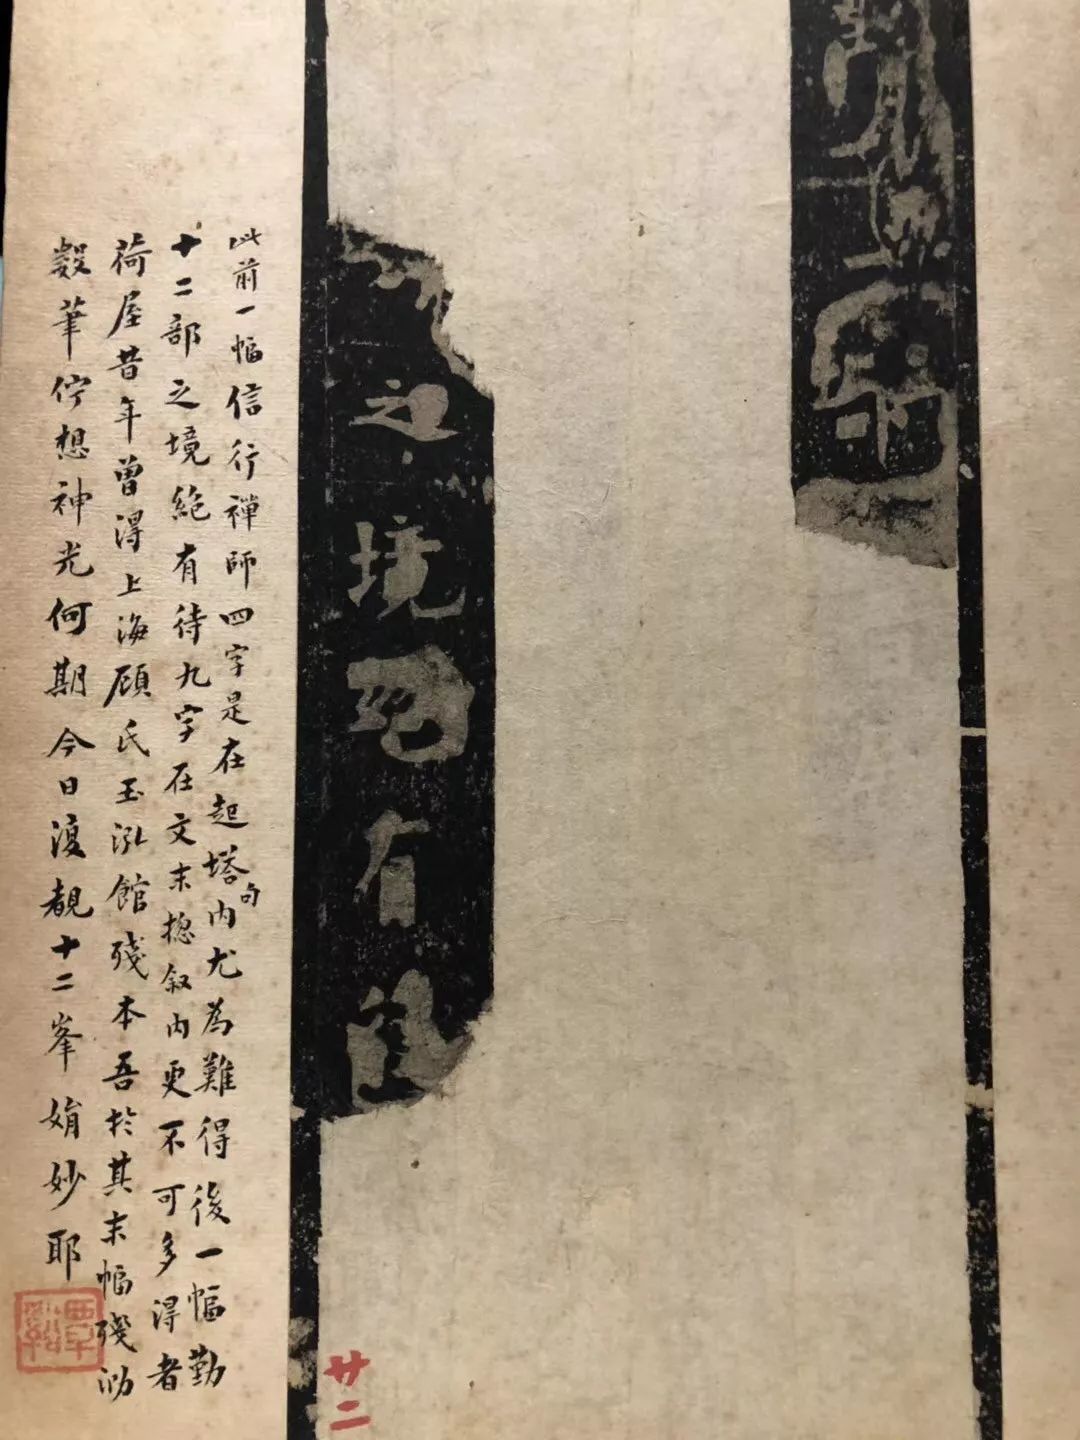 師
之境絕有
廿二
此前一幅信行禪師四字是在起塔句内尤為難得後一幅勤
十二部之境絕有待九字在文末捴叙内更不可多得者
荷屋昔年曾得上海顾氏玉泓館殘本吾於其末幅殘泐
數筆佇想神光何期今日復覩十二峯娟妙耶
覃谿